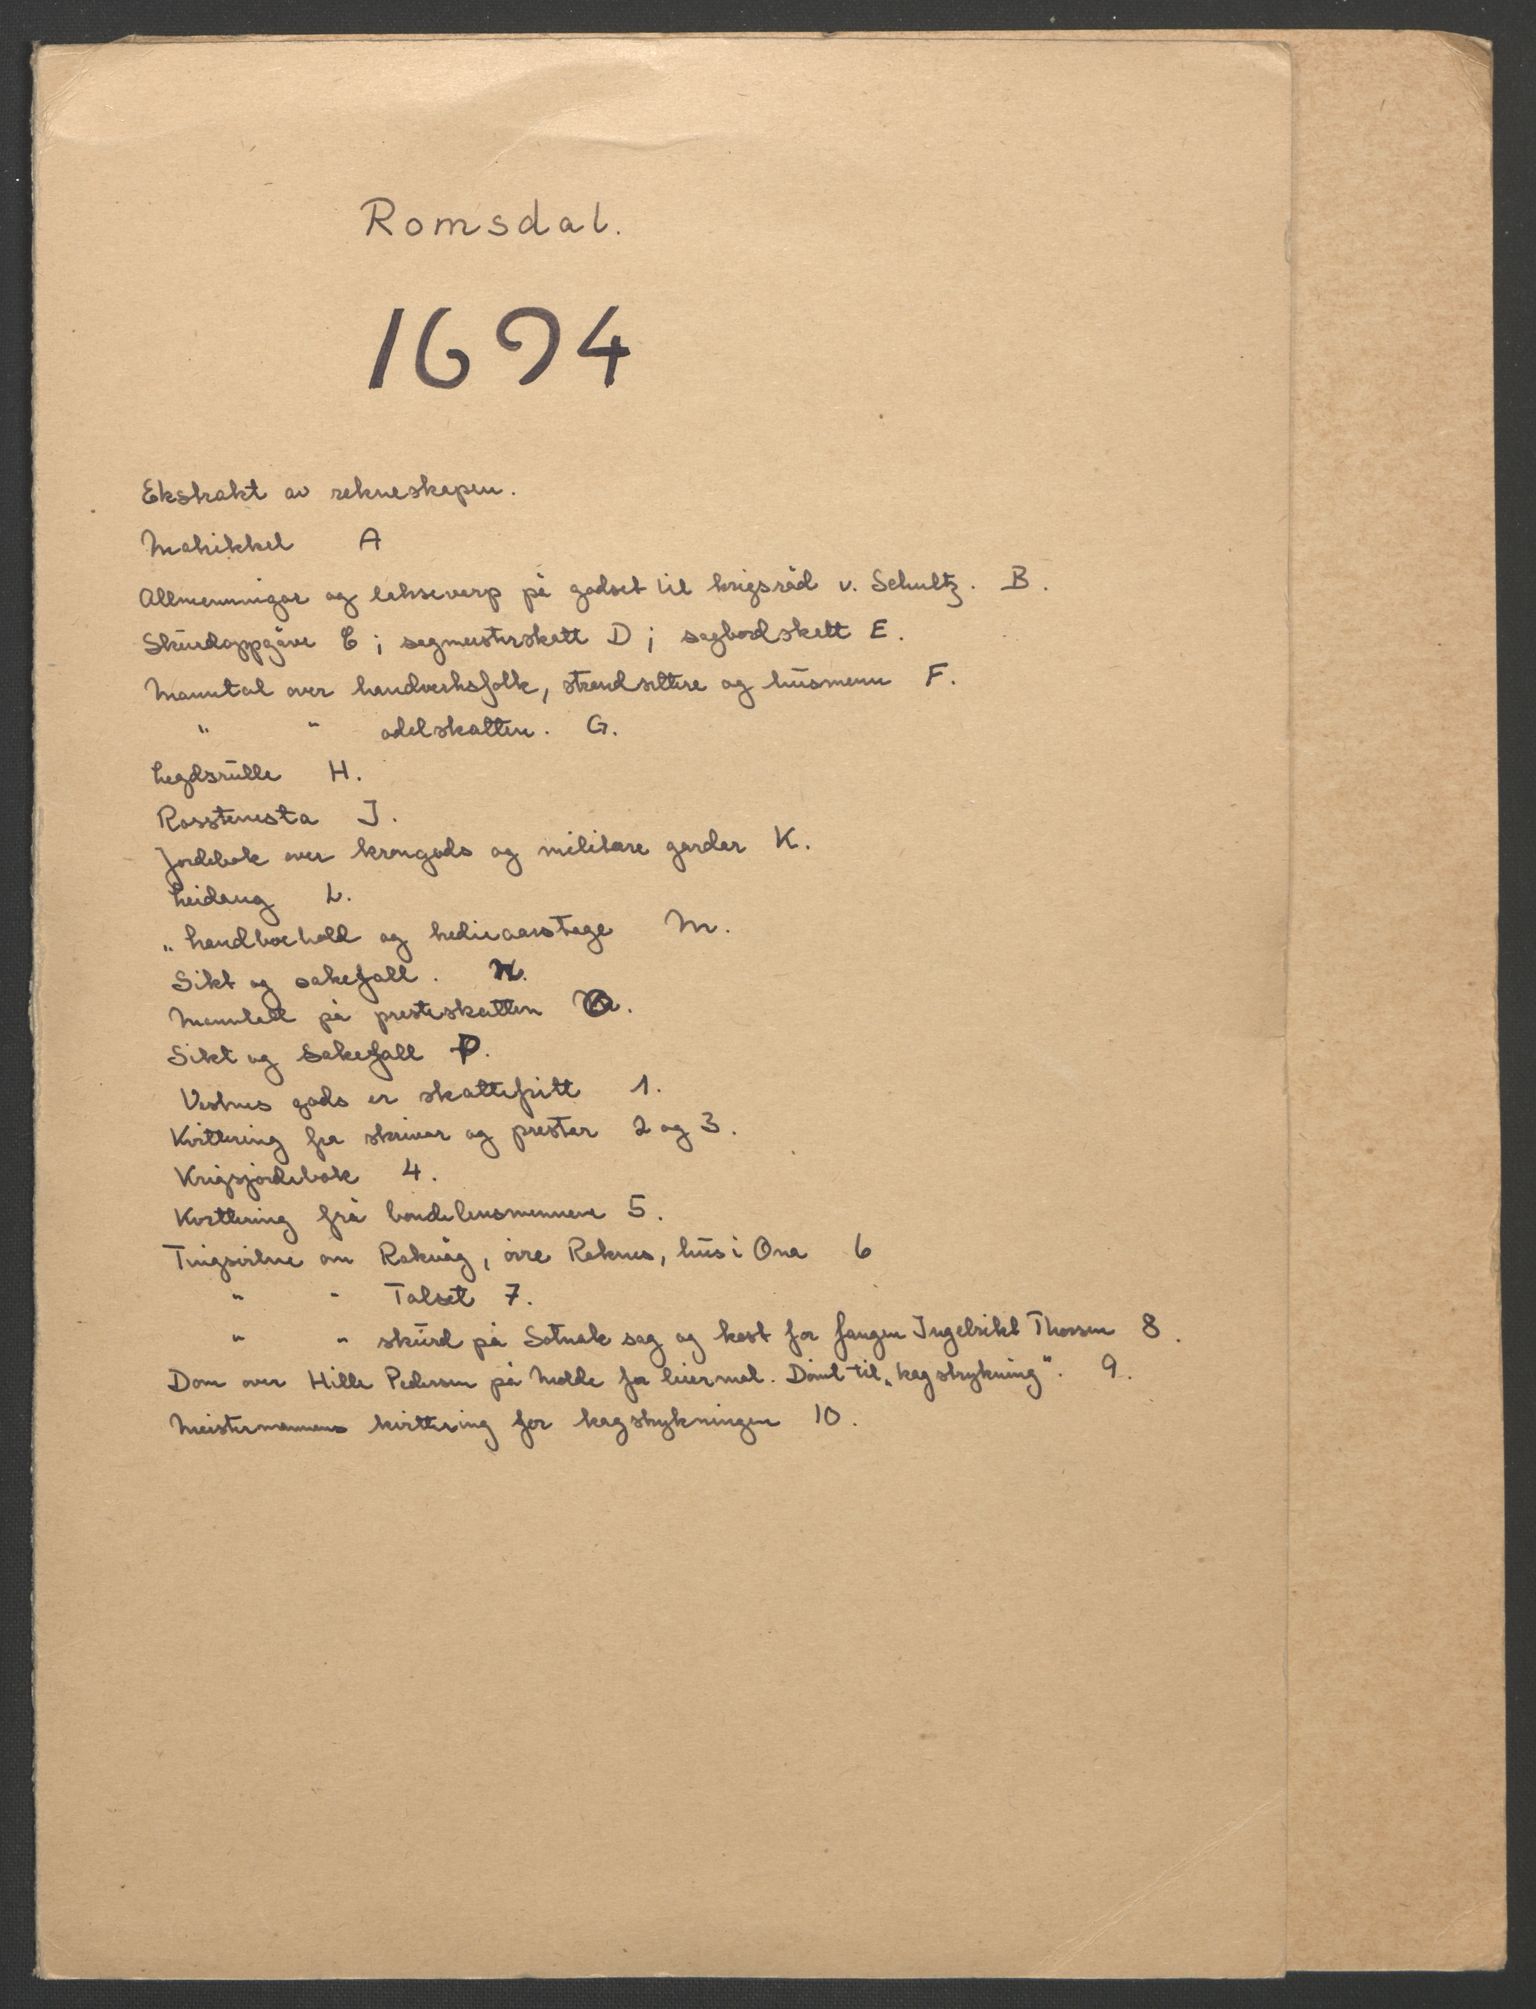 Romsdal.
1694
Ekstrakt av rekneskapen.
Matrikkel A
Allmenningar og laksevarp på godset til krigsråd v. Schultz. B.
Skurdoppgåve C; sagmesterskatt D; sagbordskatt E.
Manntal over handverksfolk, strandsittere og husmenn F.
" " odelskatten. G.
Legdsrulle H.
Rosstenesta J.
Jordebok over krongods og militære gardar K.
Leidang L.
" handboehold og M.
Sikt og sakefall. N.
Manntall på presteskatten O.
Sikt og Sakefall P.
Vestnes gods er skattefritt 1.
Kvittering fra skrivar og prestar 2 og 3.
Krigsjordebok 4.
Kvittering frå bondelensmennene 5.
Tingsvitne om Rakvåg, øvre Reknes, hus i Ona 6
" " Talset 7.
" " skurd på Sotnak sag og kost for fangen Ingebrikt Thorsen 8.
Dom over Hille Pedersen på Molde for leiermal. Dømt til „kagstrykning". 9.
Meistermannens kvittering for kagstrykningen 10.